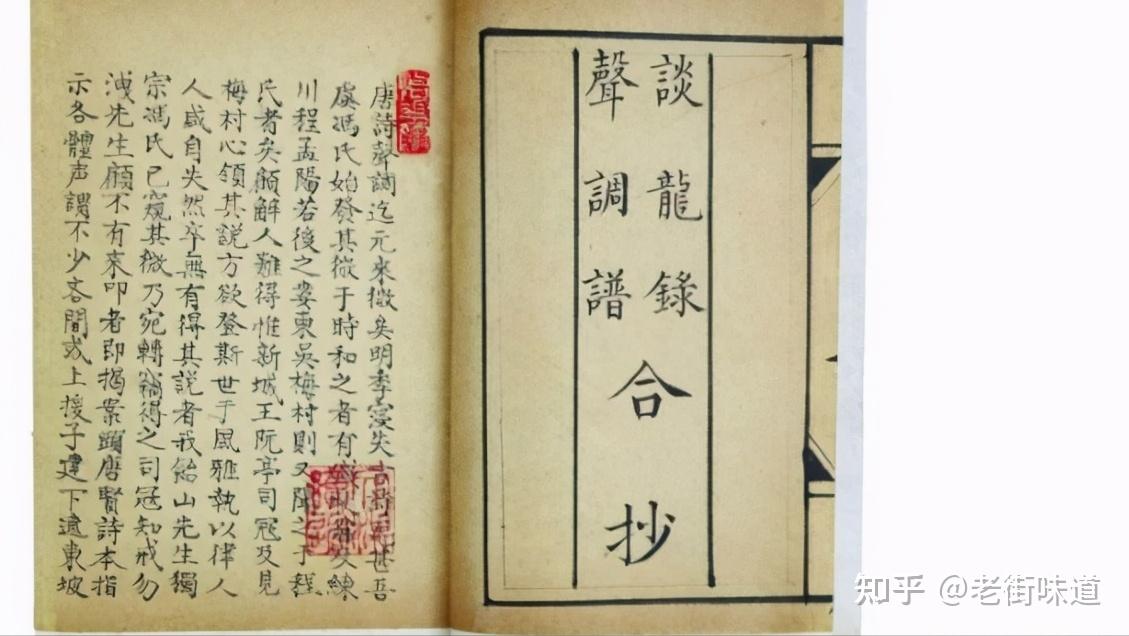 談龍錄
聲調譜
合抄
唐詩聲調迄元來微矣明季寖失古詩甚吾
虞馮氏始發其微于時和之者有錢牧齋矣練
川程孟陽若後之婁東吳梅村則又聞之于程
氏者矣顧解人難得惟新城王阮亭司寇及見
梅村心領其說方欲登斯世于風雅執以律人
人咸自失然卒無有得其說者我飴山先生獨
宗馮氏已窺其微乃宛轉竊得之司寇知戒勿
洩先生顧不有來叩者即揭案頭唐賢詩本指
示各體声謂不少吝間或上援子建下逮東坡
知乎 @老街味道